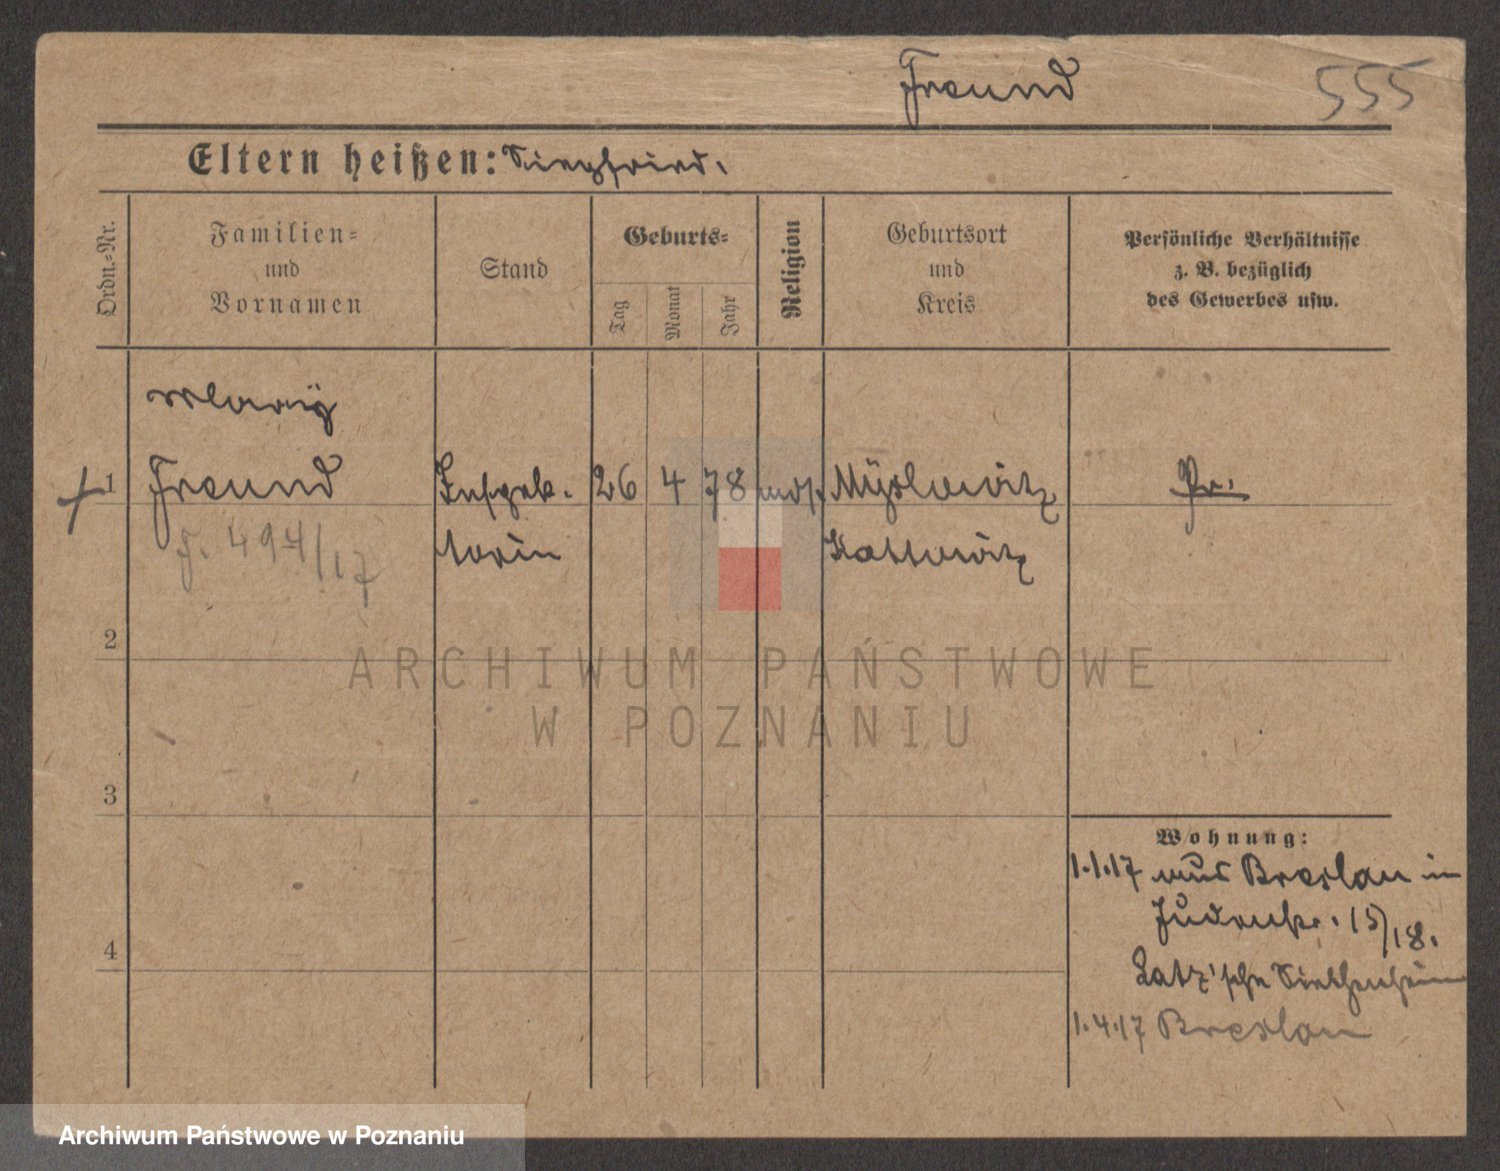 Freund 555
Eltern heißen: Siegfried.
Ordn.-Nr.
Familien-
und
Vornamen
Stand
Geburts-
Tag
Monat
Jahr
Religion
Geburtsort
und
Kreis
Persönliche Verhältnisse
z. B. bezüglich
des Gewerbes usw.
1 Freund Inspek- 26 4 78 mos. Myslowitz Pr.
F. 494/17 torin Kattowitz
2
3
4
Wohnung:
1.1.17 aus Breslau in
Judenstr. 15/18.
Latz'sche Siechenheim
1.4.17 Breslau
ARCHIWUM PAŃSTWOWE
W POZNANIU
Archiwum Państwowe w Poznaniu